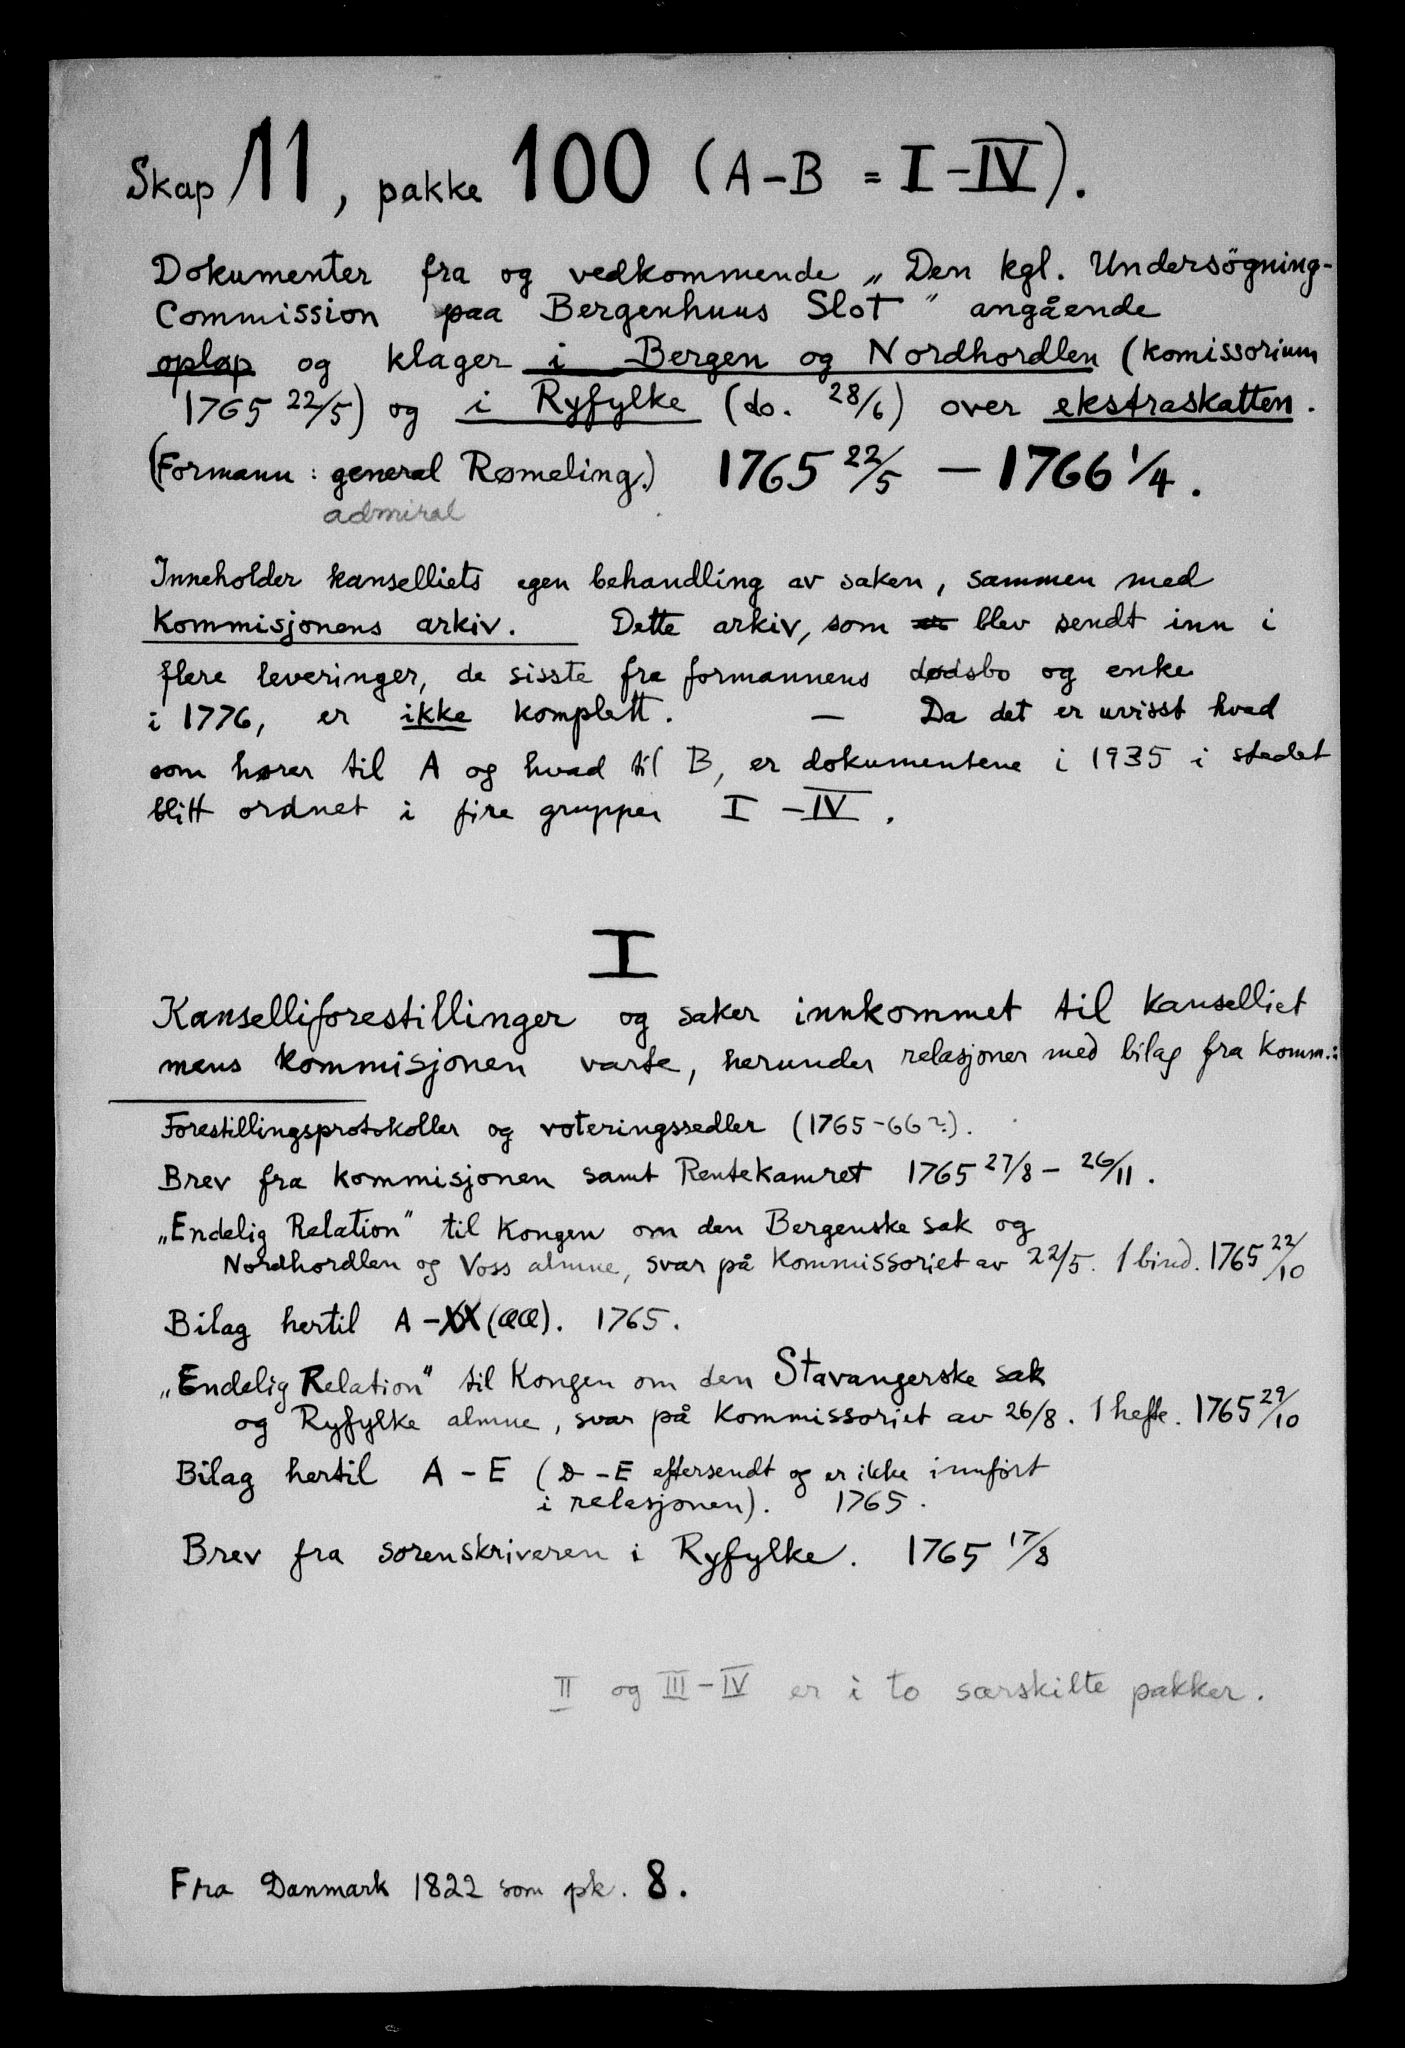 Skap 11, pakke 100 (A-B = I-IV).
Dokumenter fra og vedkommende „Den kgl. Undersögning-
Commission paa Bergenhuus Slot" angående
opløp og klager i Bergen og Nordhordlen (komissorium
1765 22/5) og i Ryfylke (do. 28/6) over ekstraskatten.
(Formann: general Rømeling.) 1765 22/5 - 1766 1/4.
admiral
Inneholder kanselliets egen behandling av saken, sammen med
Kommisjonens arkiv. Dette arkiv, som er blev sendt inn i
flere leveringer, de sisste fra formannens dødsbo og enke
i 1776, er ikke komplett. - Da det er uvisst hvad
som hører til A og hvad til B, er dokumentene i 1935 i stedet
blitt ordnet i fire grupper I - IV.
I
Kanselliforestillinger og saker innkommet til kanselliet
mens kommisjonen varte, herunder relasjoner med bilag fra komm.:
Forestillingsprotokoller og voteringssedler (1765-66?).
Brev fra kommisjonen samt Rentekamret 1765 27/8 - 26/11.
„Endelig Relation" til Kongen om den Bergenske sak og
Nordhordlen og Voss almue, svar på Kommissoriet av 22/5. 1 bind. 1765 22/10
Bilag hertil A-XX (ææ). 1765.
„Endelig Relation" til Kongen om den Stavangerske sak
og Ryfylke almue, svar på Kommissoriet av 26/8. 1 hefte. 1765 29/10
Bilag hertil A - E (D - E eftersendt og er ikke innført
i relasjonen). 1765.
Brev fra sorenskriveren i Ryfylke. 1765 17/8
II og III-IV er i to særskilte pakker.
Fra Danmark 1822 som pk. 8.